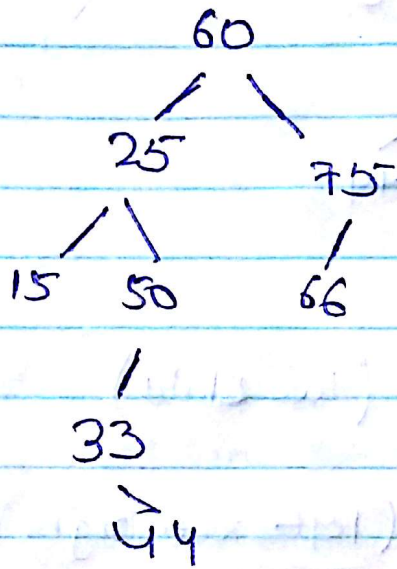 60
25
75
15 50 66
33
44